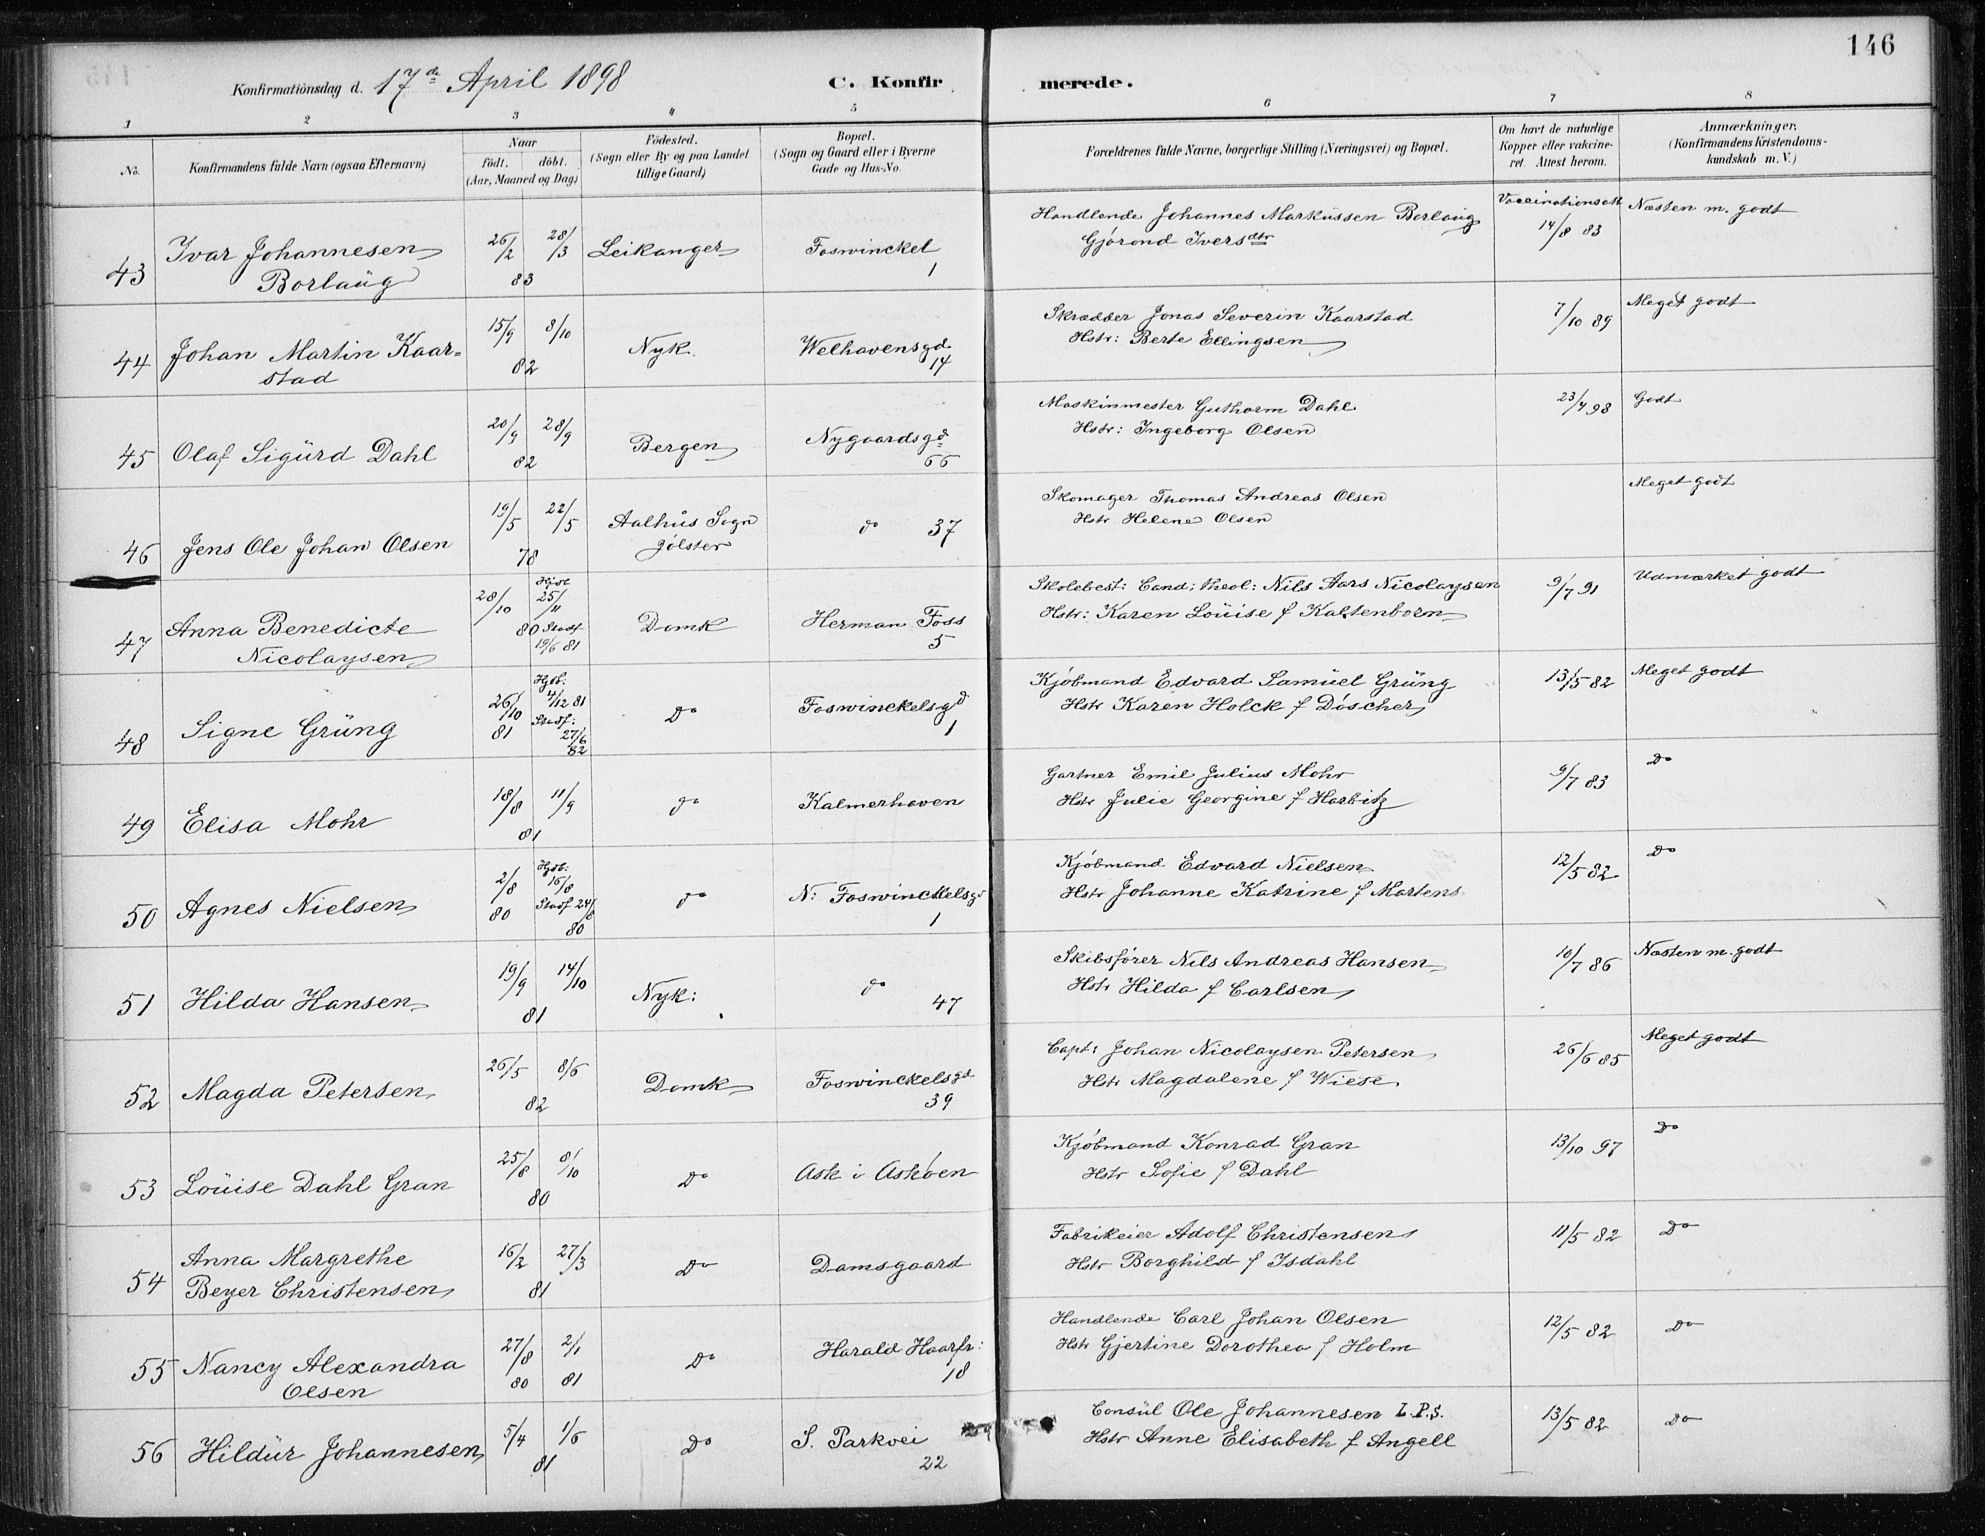 146
Konfirmationsdag d. 17de April 1898 C. Konfirmerede.
1 2 3 4 5 6 7 8
No. Konfirmandens fulde Navn (ogsaa Efternavn) Naar födt. döbt. (Aar, Maaned og Dag) Födested. (Sogn eller By og paa Landet tillige Gaard) Bopæl. (Sogn og Gaard eller i Byerne Gade og Hus-No. Forældrenes fulde Navne, borgerlige Stilling (Næringsvei) og Bopæl. Om havt de naturlige Kopper eller vakcineret. Attest herom. Anmærkninger. (Konfirmandens Kristendomskundskab m. V.)
43 Ivar Johannesen Borlaug 26/2 28/3 83 Leikanger Foswinckel 1 Handlende Johannes Markussen Borlaug Gjörond Iversdtr Vaccinationsatt 14/8 83 Næsten m. godt
44 Johan Martin Kaarstad 15/9 8/10 82 Nyk. Welhavensgd 14 Skrædder Jonas Severin Kaarstad Hstr: Berte Ellingsen 7/10 89 Meget godt
45 Olaf Sigurd Dahl 20/9 28/9 82 Bergen Nygaardsgd 66 Maskinmester Guthorm Dahl Hstr: Ingeborg Olsen 23/4 98 Godt
46 Jens Ole Johan Olsen 19/5 22/5 78 Aalhus Sogn Jölster do 37 Skomager Thomas Andreas Olsen Hstr Helene Olsen Meget godt
47 Anna Benedicte Nicolaysen 28/10 80 25/11 Stadf 19/6 81 Domk Herman Foss 5 Skolebest: Cand: theol: Nils Aars Nicolaysen Hstr: Karen Louise f Kaltenborn 9/7 91 Udmærket godt
48 Signe Grung 26/10 81 Hjdb: 4/12 81 Stadf: 27/6 82 Do Foswinckelsgd 1 Kjöbmand Edvard Samuel Grung Hstr Karen Holck f Döscher 13/5 82 Meget godt
49 Elisa Mohr 18/8 11/9 81 do Kalmerhaven Gartner Emil Julius Mohr Hstr Julie Georgine f Harbitz 9/7 83 Do
50 Agnes Nielsen 2/8 80 Hjdb: 16/8 Stadf 24/8 80 do N: Foswinckelsgd 1 Kjöbmand Edvard Nielsen Hstr Johanne Katrine f Martens 12/5 82 Do
51 Hilda Hansen 19/9 14/10 81 Nyk: do 47 Skibsförer Nils Andreas Hansen Hstr Hilda f Carlsen 10/7 86 Næsten m. godt
52 Magda Petersen 26/5 8/6 82 Domk Foswinckelsgd 39 Capt: Johan Nicolaysen Petersen Hstr Magdalene f Wiese 26/6 85 Meget godt
53 Louise Dahl Gran 25/8 8/10 80 Do Ask i Asköen Kjöbmand Konrad Gran Hstr Sofie f Dahl 13/10 97 Do
54 Anna Margrethe Beyer Christensen 16/2 27/3 81 Do Damsgaard Fabrikeier Adolf Christensen Hstr Borghild f Isdahl 11/5 82 Do
55 Nancy Alexandra Olsen 27/8 80 2/1 81 Do Harald Haarfr: 18 Handlende Carl Johan Olsen Hstr Gjertine Dorothea f Holm 12/5 82 Do
56 Hildur Johannesen 5/4 1/6 81 Do S. Parkvei 22 Consul Ole Johannesen L.P.S. Hstr Anne Elisabeth f Angell 13/5 82 Do